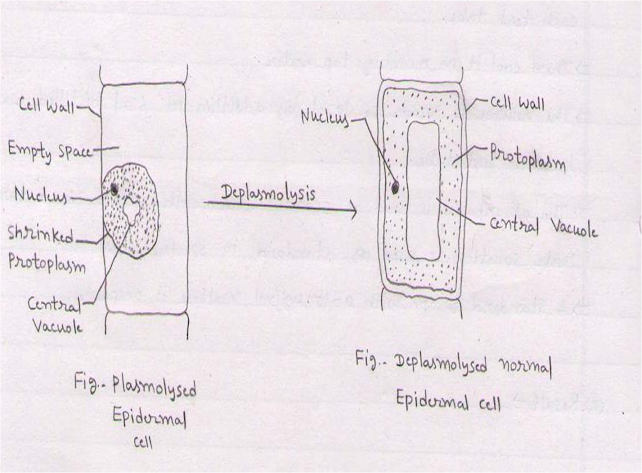 Cell Wall
Empty Space
Nucleus
Shrinked
Protoplasm
Central
Vacuole
Fig.- Plasmolysed
Epidermal
cell
Deplasmolysis
Nucleus
Cell Wall
Protoplasm
Central Vacuole
Fig.- Deplasmolysed normal
Epidermal cell